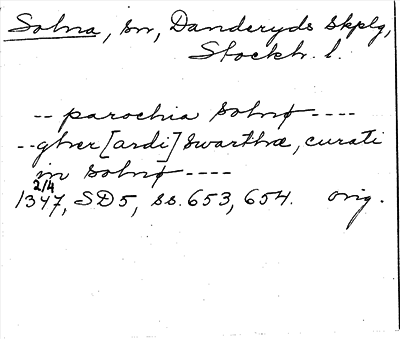 Solna, sn, Danderyds Skplg,
Stockh. l.
-- parochia Solnø ----
-- gher[ardi] Swarthæ, curati
in Solnø ----
2/4
1347, SD5, ss. 653, 654. orig.